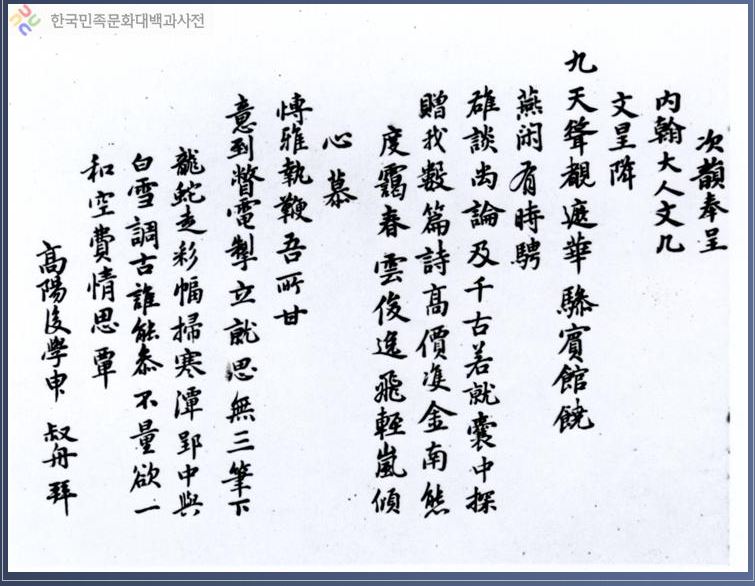 한국민족문화대백과사전
次韻奉呈
内翰大人文几
文星降
九天聳觀遮華驂賓館饒
燕闲有時騁
雄談尚論及千古若就囊中探
贈我數篇詩高價雙金南態
度靄春雲俊逸飛輕嵐傾
心慕
博雅執鞭吾所甘
意到瞥電掣立就思無三筆下
龍蛇走彩幅掃寒潭郢中與
白雪調古誰能叅不量欲一
和空費情思覃
高陽後學申叔舟拜